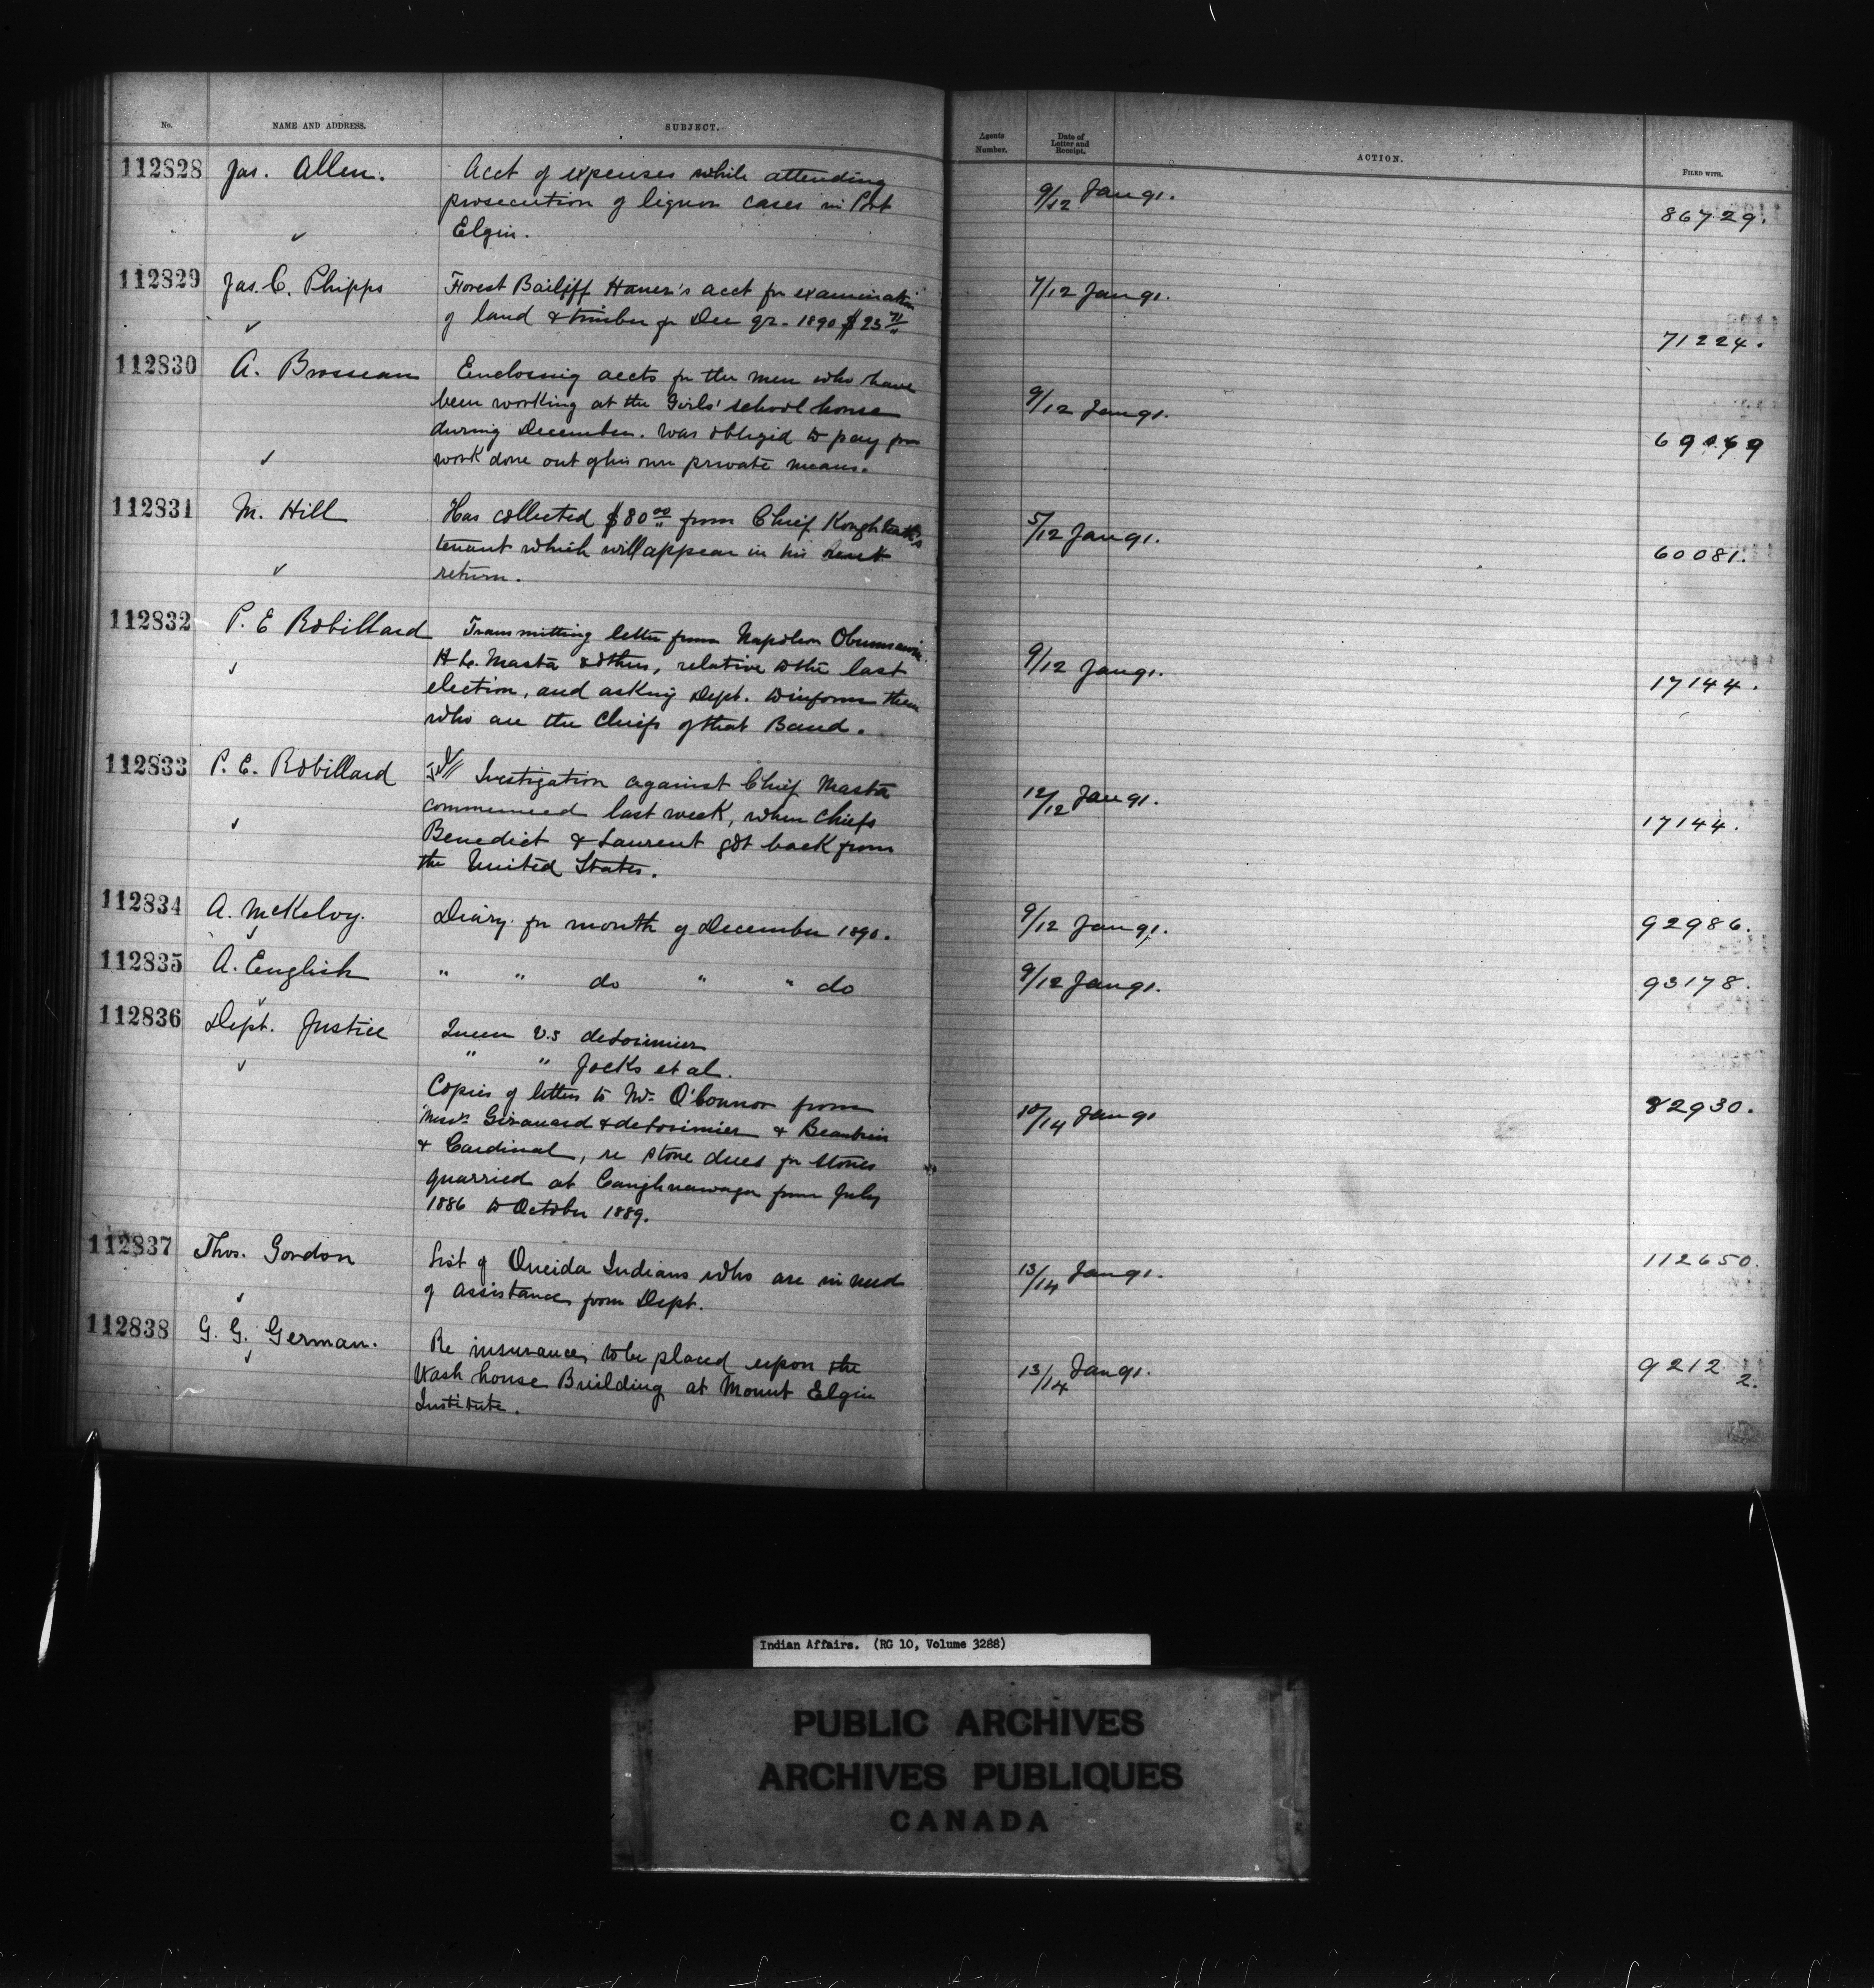 No. NAME AND ADDRESS. SUBJECT. Agents Number. Date of Letter and Receipt. ACTION. FILED WITH.
112828 Jas. Allen. Acct of expenses while attending 9/12 Jan 91. 86729.
prosecution of liquor cases in Port
Elgin.
112829 Jas. C. Phipps Forest Bailiff Haner's acct for examination 7/12 Jan 91. 71224.
of land & timber for Dec qr. 1890 $23 71/"
112830 A. Brosseau Enclosing accts for the men who have 9/12 Jan 91.
been working at the Girls' school house
during December. was obliged to pay for
work done out of his own private means.
112831 M. Hill Has collected $80 00/" from Chief 5/12 Jan 91. 60081.
tenant which will appear in his rent
return.
112832 P. E Robillard Transmitting letter from Napoleon Obumsawin 9/12 Jan 91. 17144.
H. L. Masta & others, relative to the last
election, and asking Dept. to inform them
who are the Chiefs of that Band.
112833 P. E. Robillard Ivestigation against Chief Masta 12/12 Jan 91. 17144.
commenced last week, when chiefs
Benedict & Laurent got back from
the United States.
112834 A. McKelvy. Diary for month of December 1890. 9/12 Jan 91. 92986.
112835 A. English " " do " " do 9/12 Jan 91. 93178.
112836 Dept. Justice Queen v.s deLorimier 10/14 Jan 91 82930.
" " Jocks et al.
Copies of letters to Mr. O'Connor from
Messrs Girouard & deLorimier & Beaubien
& Cardinal, re stone dues for stones
quarried at Caughnawaga from July
1886 to October 1889.
112837 Thos. Gordon List of Oneida Indians who are in need 13/14 Jan 91. 112650.
of assistance from Dept.
112838 G. G. German. Re insurance to be placed upon the 13/14 Jan 91. 92122.
Wash house Building at Mount Elgin
Institute.
Indian Affairs. (RG 10, Volume 3288)
PUBLIC ARCHIVES
ARCHIVES PUBLIQUES
CANADA